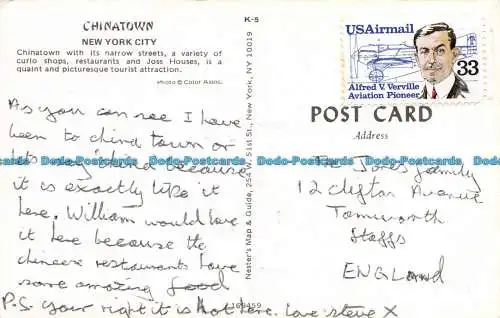 CHINATOWN
NEW YORK CITY
Chinatown with its narrow streets, a variety of
curio shops, restaurants and Joss Houses, is a
quaint and picturesque tourist attraction.
Photo © Color Assoc.
As you can see I have
been to china town or
lets say china because
it is exactly like it
here. William would love
it here because the
chinese restaurants have
some amazing food
P.S. your right it is hot here. Love Steve X
K-5
Nester's Map & Guide, 254 W. 51st St., New York, NY 10019
169459
USAirmail
33
Alfred V. Verville
Aviation Pioneer
POST CARD
Address
The Jones family
12 Clifton Avenue
Tamworth
Staffs
ENGLAND
Dodo-Postcards.com Dodo-Postcards.com Dodo-Postcards.com Dodo-Postcards.com